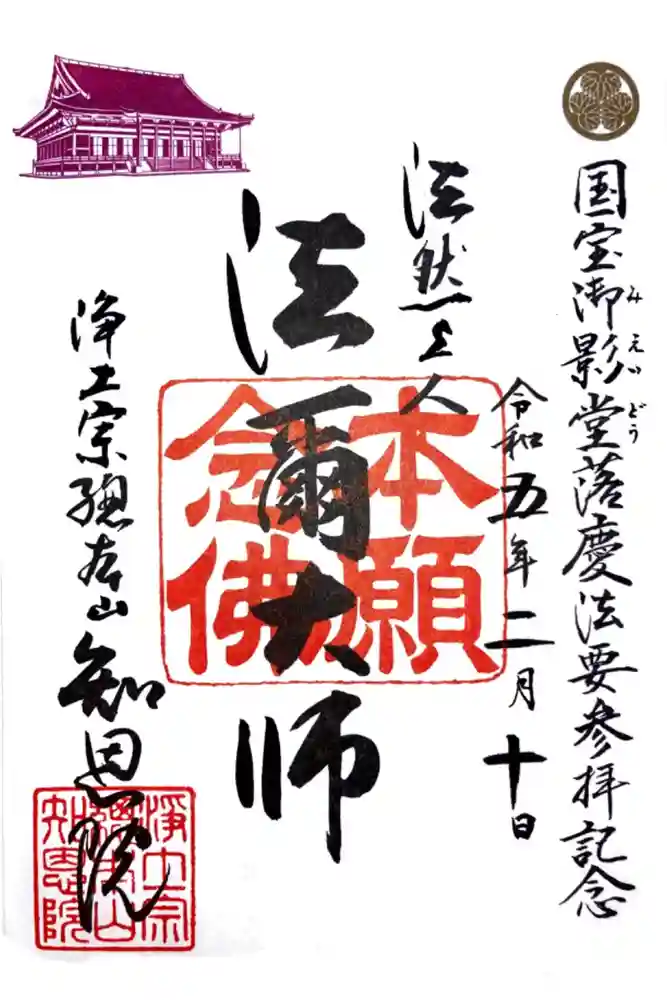 国宝御影堂落慶法要参拝記念
みえいどう
令和五年二月十日
法然上人
法爾大師
本願
念佛
浄土宗總本山知恩院
淨土宗
總本山
知恩院